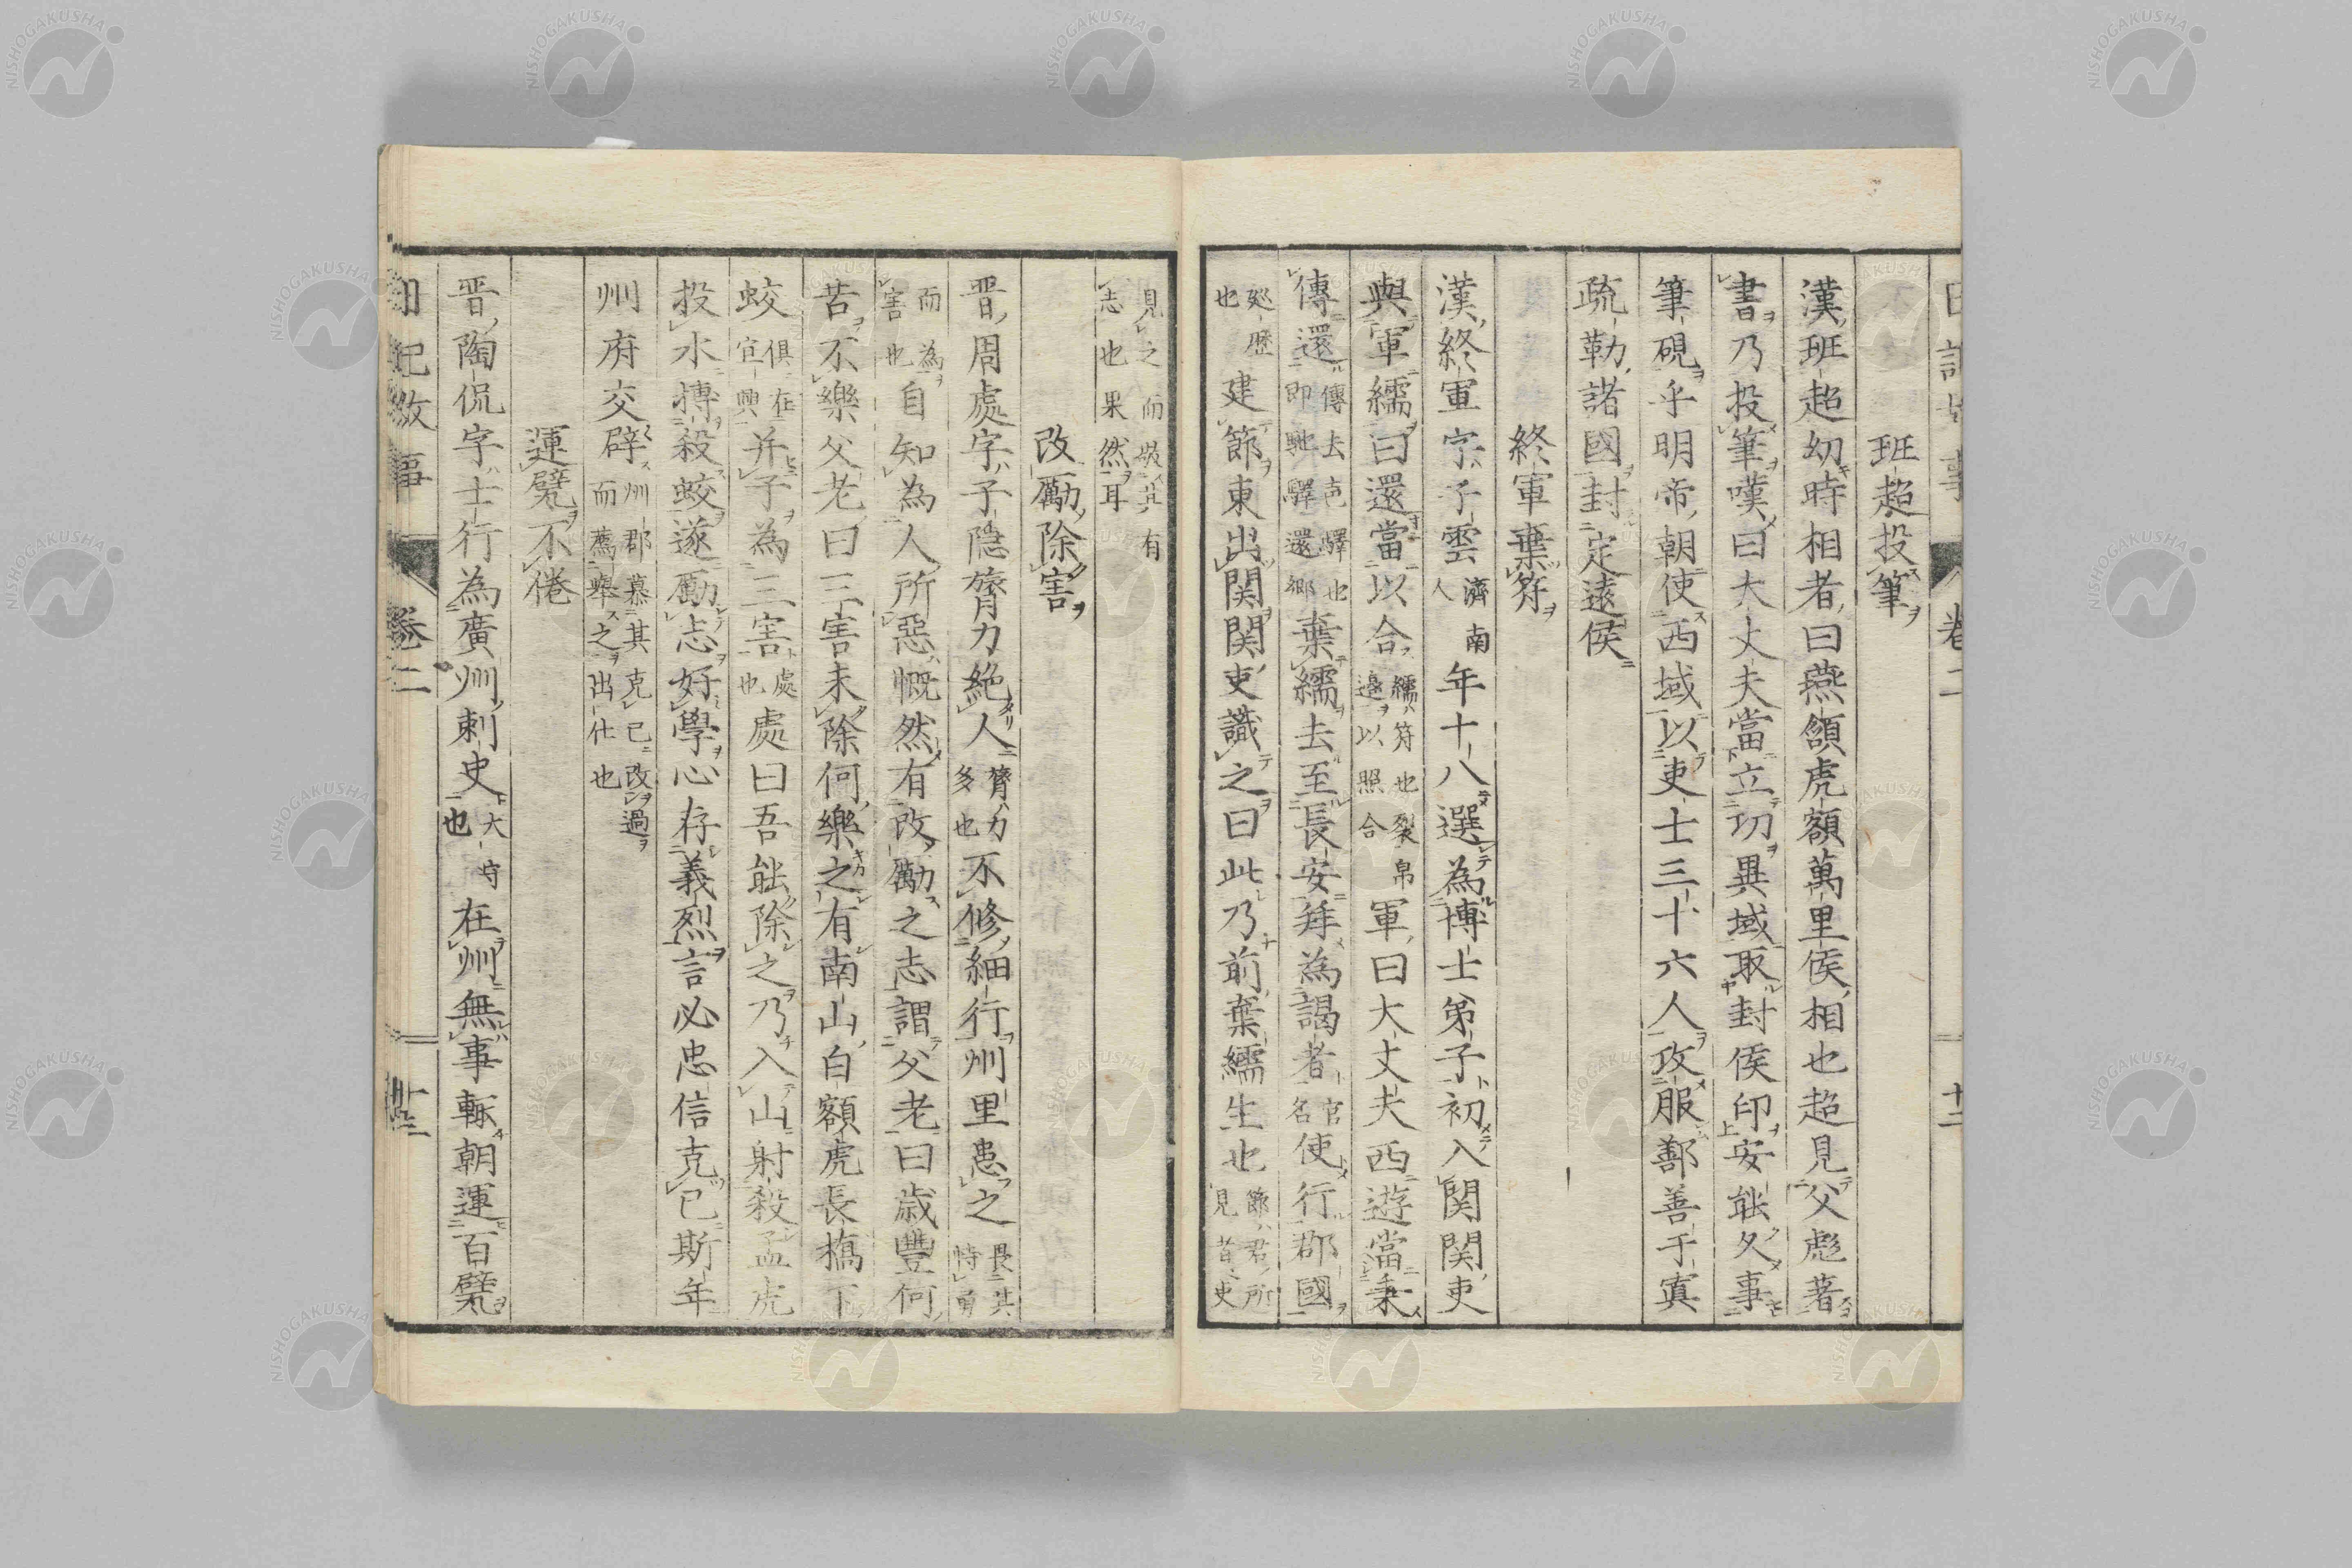 班超投筆
漢班超幼時相者曰燕頷虎額萬里侯相也超見父彪著
書乃投筆嘆曰大丈夫當立功異域取封侯印安能久事
筆硯乎明帝朝使西域以吏士三十六人攻服鄯善于寘
疏勒諸國封定遠侯
終軍棄符
漢終軍字子雲濟南人年十八選為博士弟子初入関関吏
與軍繻曰還當以合繻符也裂帛邉以照合軍曰大丈夫西遊當秉
傳還傳去声驛也即馳驛還郷棄繻去至長安拜為謁者官名使行郡國
廵歴也建節東出関関吏識之曰此乃前棄繻生也節君所見昔吏
見之而嘆其有志也果然耳
改勵除害
晋周處字子隠膂力絶人膂力多也不修細行州里患之畏其恃勇
而為害也自知為人所惡慨然有改勵之志謂父老曰歳豐何
苦不樂父老曰三害未除何樂之有南山白額虎長橋下
蛟俱在宜興并子為三害處也處曰吾能除之乃入山射殺孟虎
投水搏殺蛟遂勵志好學心存義烈言必忠信克已斯年
州府交辟州郡慕其克已改過而薦舉之出仕也
運甓不倦
晋陶侃字士行為廣州刺史大守也在州無事輙朝運百甓
日記故事 卷二